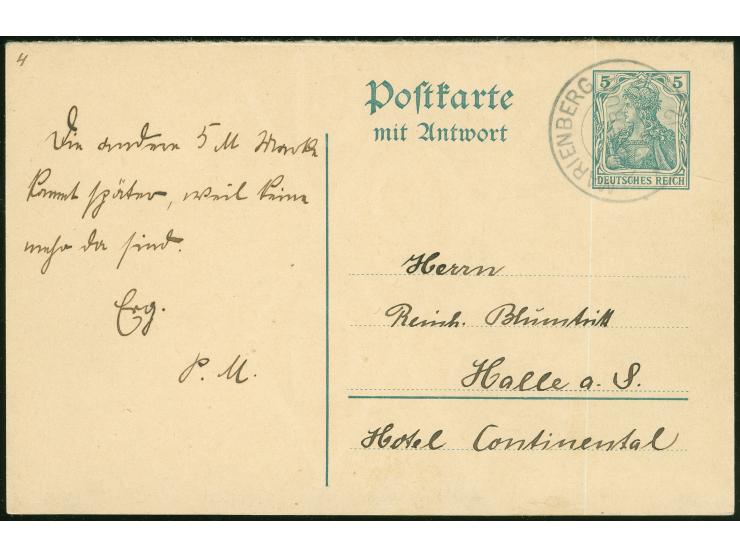 4
Die andere 5 M Marke
kommt später, weil keine
mehr da sind.
Erg.
P. M.
Postkarte
mit Antwort
MARIENBERG
5 5
DEUTSCHES REICH
Herrn
Reinh. Blumtritt
Halle a. S.
Hotel Continental